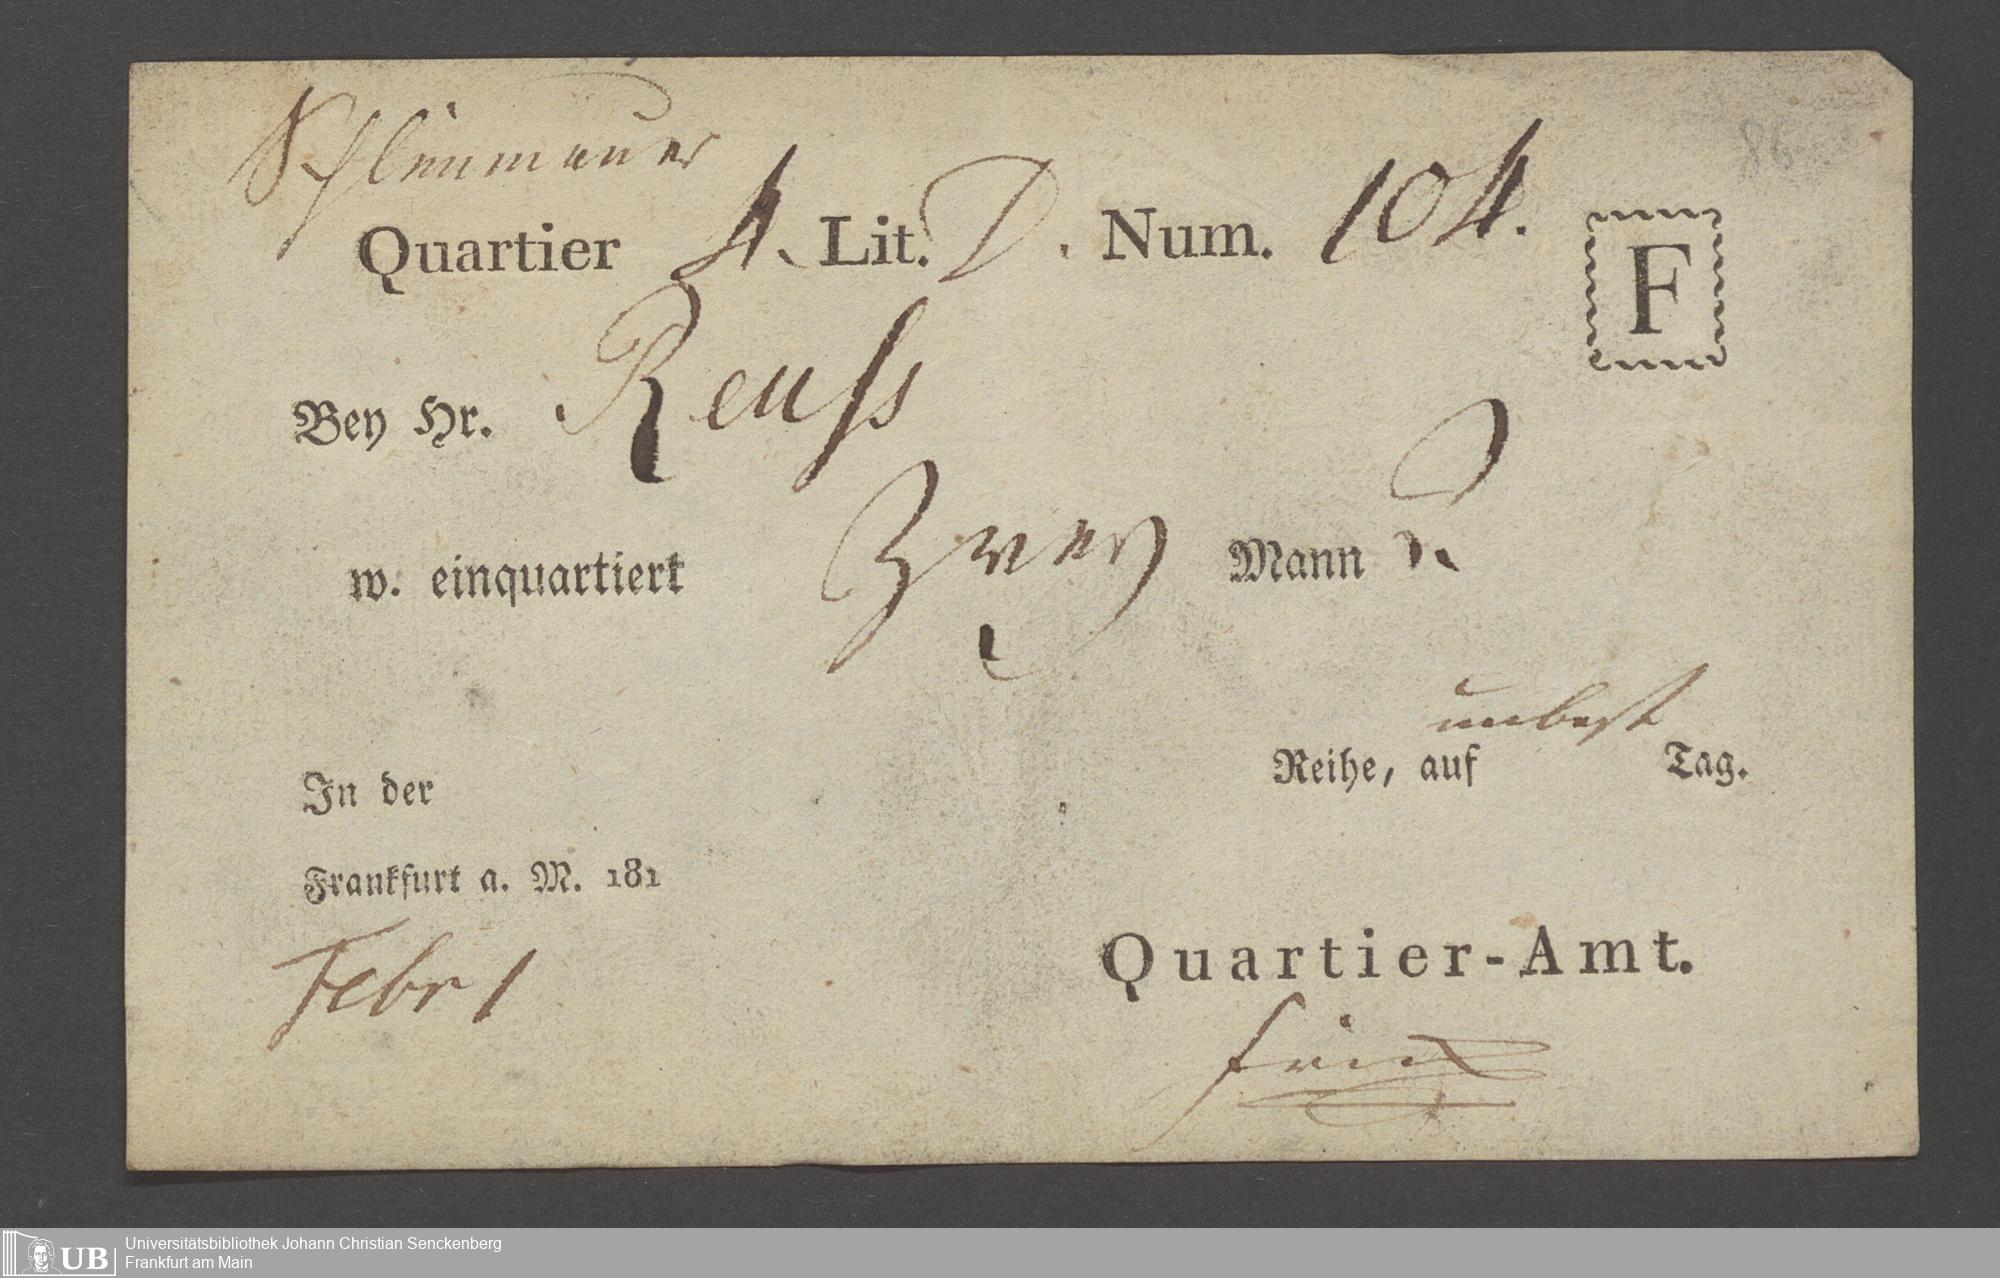 Schlimmauer
86
Quartier 4. Lit. D. Num. 104.
F
Bey Hr. Reuss
w. einquartiert Zwey Mann
unbest
In der Reihe, auf Tag.
Frankfurt a. M. 181
Febr 1
Quartier-Amt.
UB Universitätsbibliothek Johann Christian Senckenberg
Frankfurt am Main